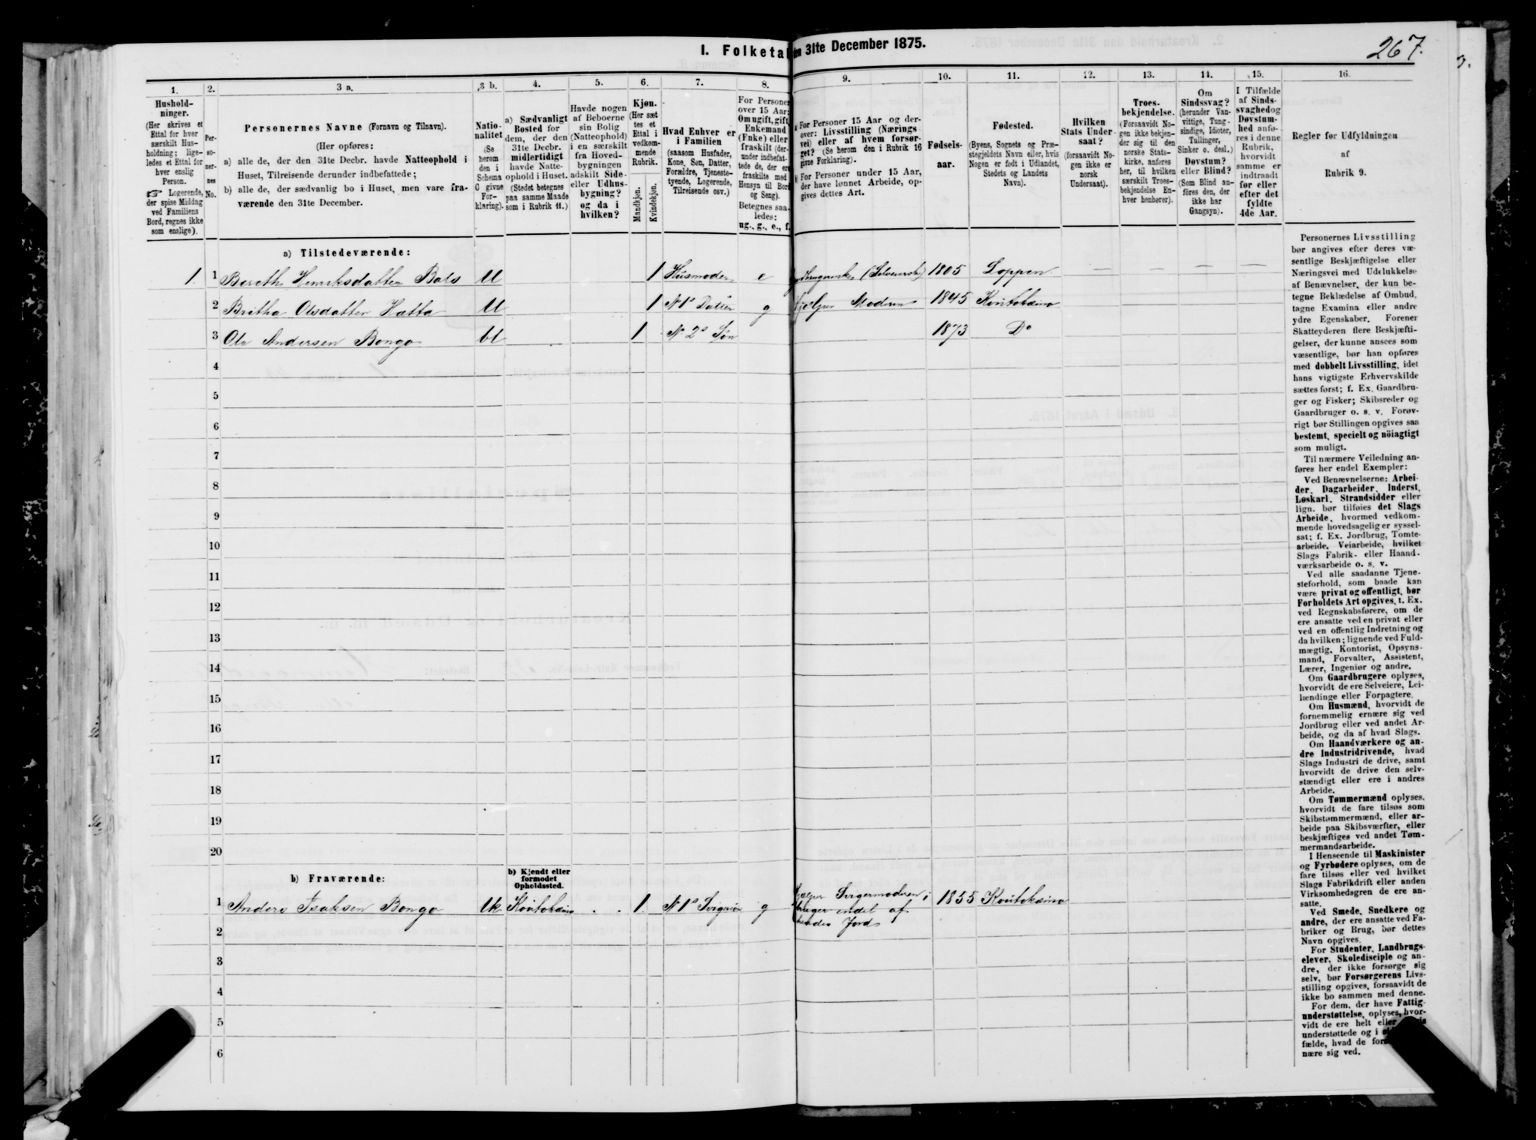 I. Folketa en 31te December 1875.
267.
1.
Hushold-
ninger.
(Her skrives et
Ettal for hver
særskilt Hus-
holdning; lige-
ledes et Ettal for
hver enslig
Person.
Logerende,
der spise Middag
ved Familiens
Bord, regnes ikke
som enslige).
2.
Per-
so-
ner-
nes
No.
3 a.
Personernes Navne (Fornavn og Tilnavn).
(Her opføres:
a) alle de, der den 31te Decbr. havde Natteophold i
Huset, Tilreisende derunder indbefattede;
b) alle de, der sædvanlig bo i Huset, men vare fra-
værende den 31te December.
3 b.
Natio-
nalitet
(Se
herom
den i
Schema
C givne
For-
klaring).
4.
a) Sædvanligt
Bosted for
dem, der den
31te Decbr.
midlertidigt
havde Natte-
ophold i Huset.
(Stedet betegnes
paa samme Maade
som i Rubrik 11.)
5.
Havde nogen
af Beboerne
sin Bolig
(Natteophold)
i en særskilt
fra Hoved-
bygningen
adskilt Side-
eller Udhus-
bygning?
og da i
hvilken?
6.
Kjøn.
(Her sæt
tes et
Ettal i
vedkom-
mende
Rubrik.
Mandkjøn.
Kvindekjøn.
7.
Hvad Enhver er
i Familien
(saasom Husfader,
Kone, Søn, Datter,
Forældre, Tjeneste-
tyende, Logerende,
Tilreisende osv.)
8.
For Personer
over 15 Aar:
Om ugift, gift,
Enkemand
(Enke) eller
fraskilt (der-
under indbefat-
tede de, der er
fraskilte med
Hensyn til Bord
og Seng).
Betegnes saa-
ledes:
ug., g., e., f.
9.
For Personer over 15 Aar og der-
over: Livsstilling (Nærings-
vei) eller af hvem forsør-
get? (Se herom den i Rubrik 16
givne Forklaring).
For Personer under 15 Aar,
der have lønnet Arbeide, op-
gives dettes Art.
10.
Fødsels-
aar.
11.
Fødested.
(Byens, Sognets og Præ-
stegjeldets Navn eller, hvis
Nogen er født i Udlandet,
Stedets og Landets
Navn).
12.
Hvilken
Stats Under-
saat?
(forsaavidt No-
gen ikke er
norsk
Undersaat).
13.
Troes-
bekjendelse.
(Forsaavidt No-
gen ikke bekjen-
der sig til den
norske Stats-
kirke, anføres
her, til hvilken
særskilt Troes-
bekjendelse En-
hver henhører).
14.
Om
Sindssvag?
(herunder Van-
vittige, Tung-
sindige, Idioter,
Tullinger,
Sinker o. desl.)
Døvstum?
eller Blind?
(Som Blind an-
føres den, der
ikke har
Gangsyn).
15.
I Tilfælde
af Sinds-
svaghed og
Døvstum-
hed anfø-
res i denne
Rubrik,
hvorvidt
samme er
indtraadt
før eller
efter det
fyldte
4de Aar.
16.
Regler før Udfyldningen
af
Rubrik 9.
a) Tilstedeværende:
1. 1 Bereth Henriksdatter Bals U 1 Husmoder e 1805 Loppen
2 Britha Olsdatter Hætta U 1 No 1s Datter g Hjælper Moderen 1845 Koutokæino
3 Ole Andersen Bongo bl 1 No 2s Søn 1873 Do
4
5
6
7
8
9
10
11
12
13
14
15
16
17
18
19
20
b) Fraværende:
b) Kjendt eller
formodet
Opholdssted.
1 Anders Isaksen Bongo Uk Koutokæino 1 No 1s Svigersøn g Hjælper Svigermoderen; 1855 Koutokæino
bruger endel af
hendes Jord
2
3
4
5
6
Personernes Livsstilling
bør angives efter deres væ-
sentlige Beskjæftigelse eller
Næringsvei med Udelukkelse
af Benævnelser, der kun be-
tegne Beklædelse af Ombud,
tagne Examina eller andre
ydre Egenskaber. Forener
Skatteyderen flere Beskjæfti-
gelser, der kunne ansees som
væsentlige, bør han opføres
med dobbelt Livsstilling, idet
hans vigtigste Erhvervskilde
sættes først; f. Ex. Gaardbru-
ger og Fisker; Skibsreder og
Gaardbruger o. s. v. Forøv-
rigt bør Stillingen opgives saa
bestemt, specielt og nöiagtigt
som muligt.
Til nærmere Veiledning an-
føres her endel Exempler:
Ved Benævnelserne: Arbei-
der, Dagarbeider, Inderst,
Løskarl, Strandsidder eller
lign. bør tilføies det Slags
Arbeide, hvormed vedkom-
mende hovedsagelig er syssel-
sat; f. Ex. Jordbrug, Tomte-
arbeide, Veiarbeide, hvilket
Slags Fabrik- eller Haand-
værksarbeide o. s. v.
Ved alle saadanne Tjene-
steforhold, som baade kan
være privat og offentligt, bør
Forholdets Art opgives, t. Ex.
ved Regnskabsførere, om de
ere ansatte ved en privat eller
ved en offentlig Indretning og
da hvilken; lignende ved Fuld-
mægtig, Kontorist, Opsyns-
mand, Forvalter, Assistent,
Lærer, Ingeniør og andre.
Om Gaardbrugere oplyses,
hvorvidt de ere Selveiere, Lei-
lændinge eller Forpagtere.
Om Husmænd, hvorvidt de
fornemmelig ernære sig ved
Jordbrug eller ved andet Ar-
beide, og da af hvad Slags.
Om Haandværkere og an-
dre Industridrivende, hvad
Slags Industri de drive, samt
hvorvidt de drive den selv-
stændigt eller ere i andres
Arbeide.
Om Tømmermænd oplyses,
hvorvidt de fare tilsøs som
Skibstømmermænd, eller ar-
beide paa Skibsværfter, eller
beskjæftiges ved andet Tøm-
mermandsarbeide.
I Henseende til Maskinister
og Fyrbødere oplyses, om de
fare tilsøs eller ved hvilket
Slags Fabrikdrift eller anden
Virksomhedsgren de ere an-
satte.
Ved Smede, Snedkere og
andre, der ere ansatte ved Fa-
briker og Brug, bør dettes
Navn opgives.
For Studenter, Landbrugs-
elever, Skoledisciple og an-
dre, der ikke forsørge sig
selv, bør Forsørgerens Livs-
stilling opgives, forsaavidt de
ikke bo sammen med denne.
For dem, der have Fattig-
understøttelse, oplyses, hvor-
vidt de ere helt eller
understøttede og i
fælde, hvad de for
nære sig ved.